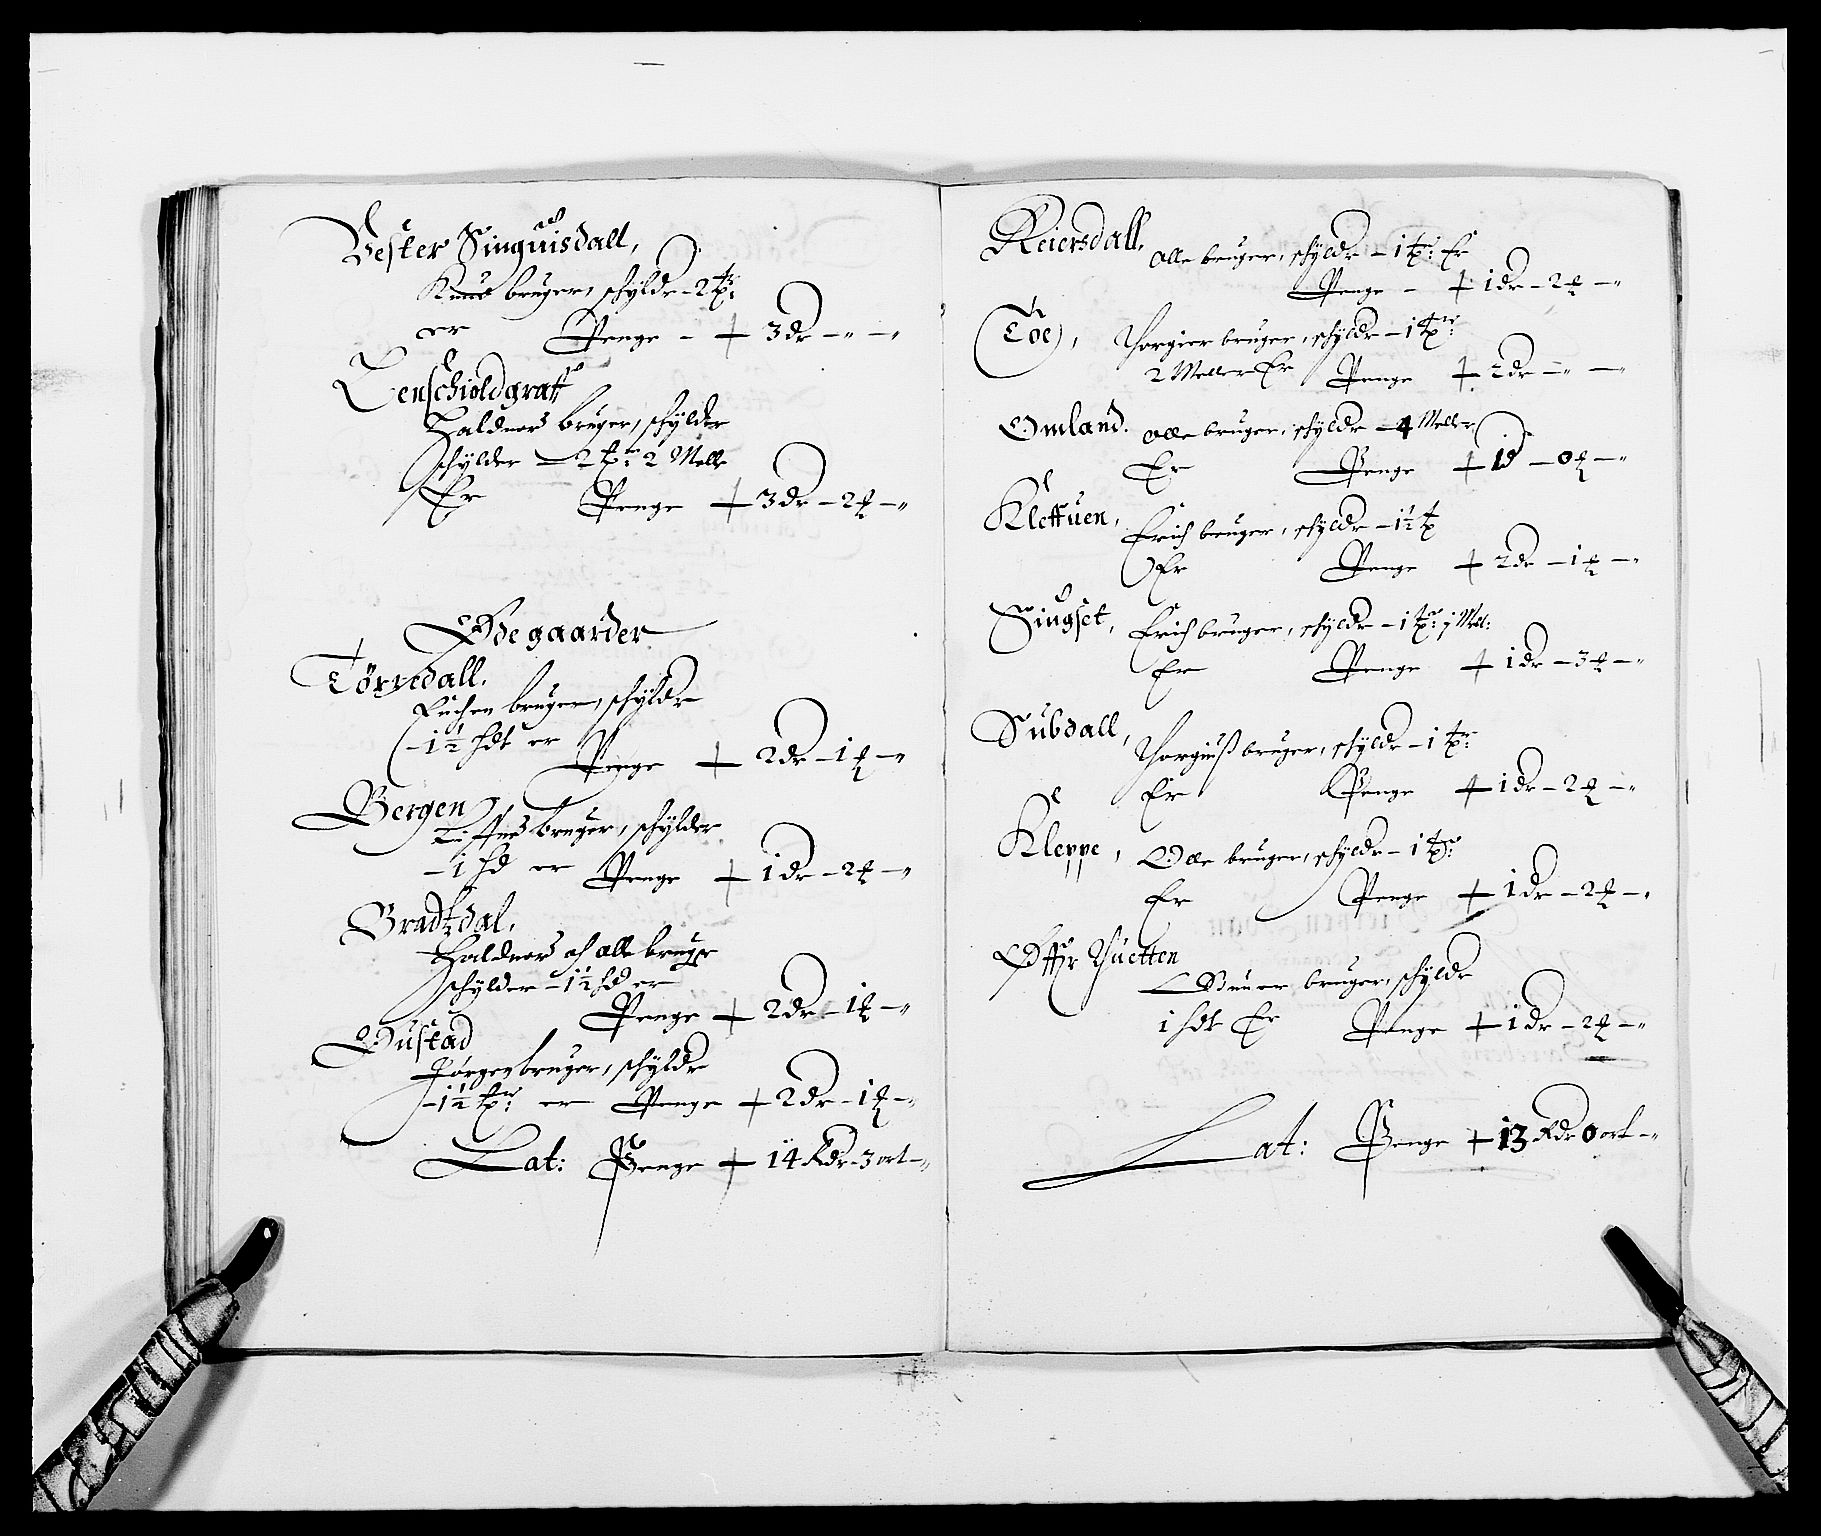 Vester Singuisdall,
Knud bruger, schÿldr - 2 tr:
er Penge - + 3 dr - „ - „
Lenschioldgraff
Haldvord bruger, schÿlder
schÿlder - 2 tr: 2 Melle
Er Penge + 3 dr - 2 ₰ - „
Ødegaarder
Törredall.
bruger, schÿldr
- 1½ hdt er
Penge + 2 dr - 1 ₰ - „
Bergen
bruger, schÿlder
- 1 hd er Penge + 1 dr - 2 ₰ - „
Bradtzdal.
Haldvord oc alle bruger
schÿlder - 1½ hd er
Penge + 2 dr - 1 ₰ - „
Gustad
Jørgen bruger, schÿldr
- 1½ tr: er Penge + 2 dr - 1 ₰ - „
Lat: Penge + 14 Rdr - 3 ort - „
Reiersdall, olle bruger, schÿldr - 1 tr: Er
Penge - + 1 dr - 2 ₰ - „
Töe, Thorgier bruger, schÿldr - 1 tr:
2 Meller Er Penge + 2 dr - „ -
Omland. olle bruger, schÿldr - 4 Meller
Er Penge + 1 d - 0 ₰ - „
Kleffuen, Erich bruger, schÿldr - 1½ t
Er Penge + 2 dr - 1 ₰ - „
Singset, Erich bruger, schÿldr - 1 tr: 1 Mel:
Er Penge + 1 dr - 3 ₰ - „
Subdall, Thorgiuß bruger, schÿldr - 1 tr:
Er Penge + 1 dr - 2 ₰ - „
Kleppe, Olle bruger, schÿldr - 1 tr:
Er Penge + 1 dr - 2 ₰ - „
Øffr Thuetten
Guner bruger, schÿldr
1 hdt Er Penge + 1 dr - 2 ₰ - „
Lat: Penge + 13 Rdr 0 ort - „